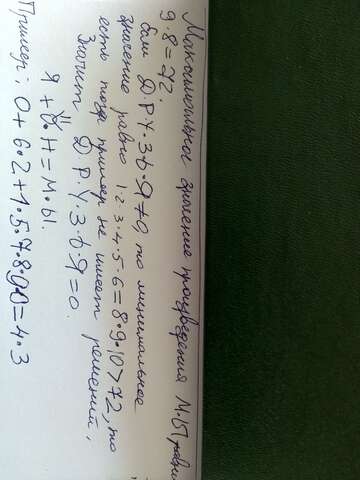 Максимальное значение произведения М·Ы равно
9·8=72.
Если Д·Р·У·З·Ь·Я≠0, то минимальное
значение равно 1·2·3·4·5·6=8·9·10>72, то
есть тогда пример не имеет решений,
значит Д·Р·У·З·Ь·Я=0.
Я + И·Н=М·Ы.
Пример: 0+6·2+1·5·7·8·9·0=4·3